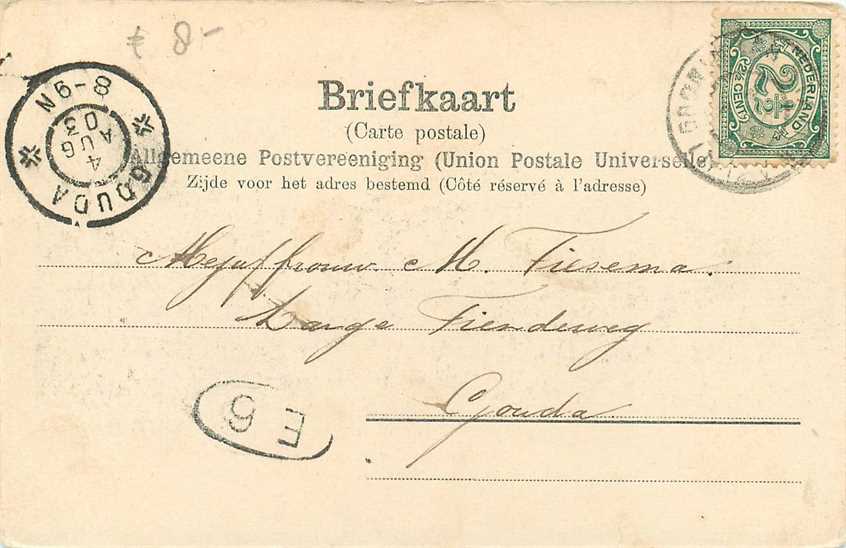 8-
Briefkaart
(Carte postale)
Algemeene Postvereeniging (Union Postale Universelle)
Zijde voor het adres bestemd (Côté réservé à l'adresse)
GOUDA
4
AUG
03
8-9N
NEDERLAND
2½
2½ CENT
Mejuffrouw. M. Tiesema.
Lange Tiendeweg
Gouda.
E 6